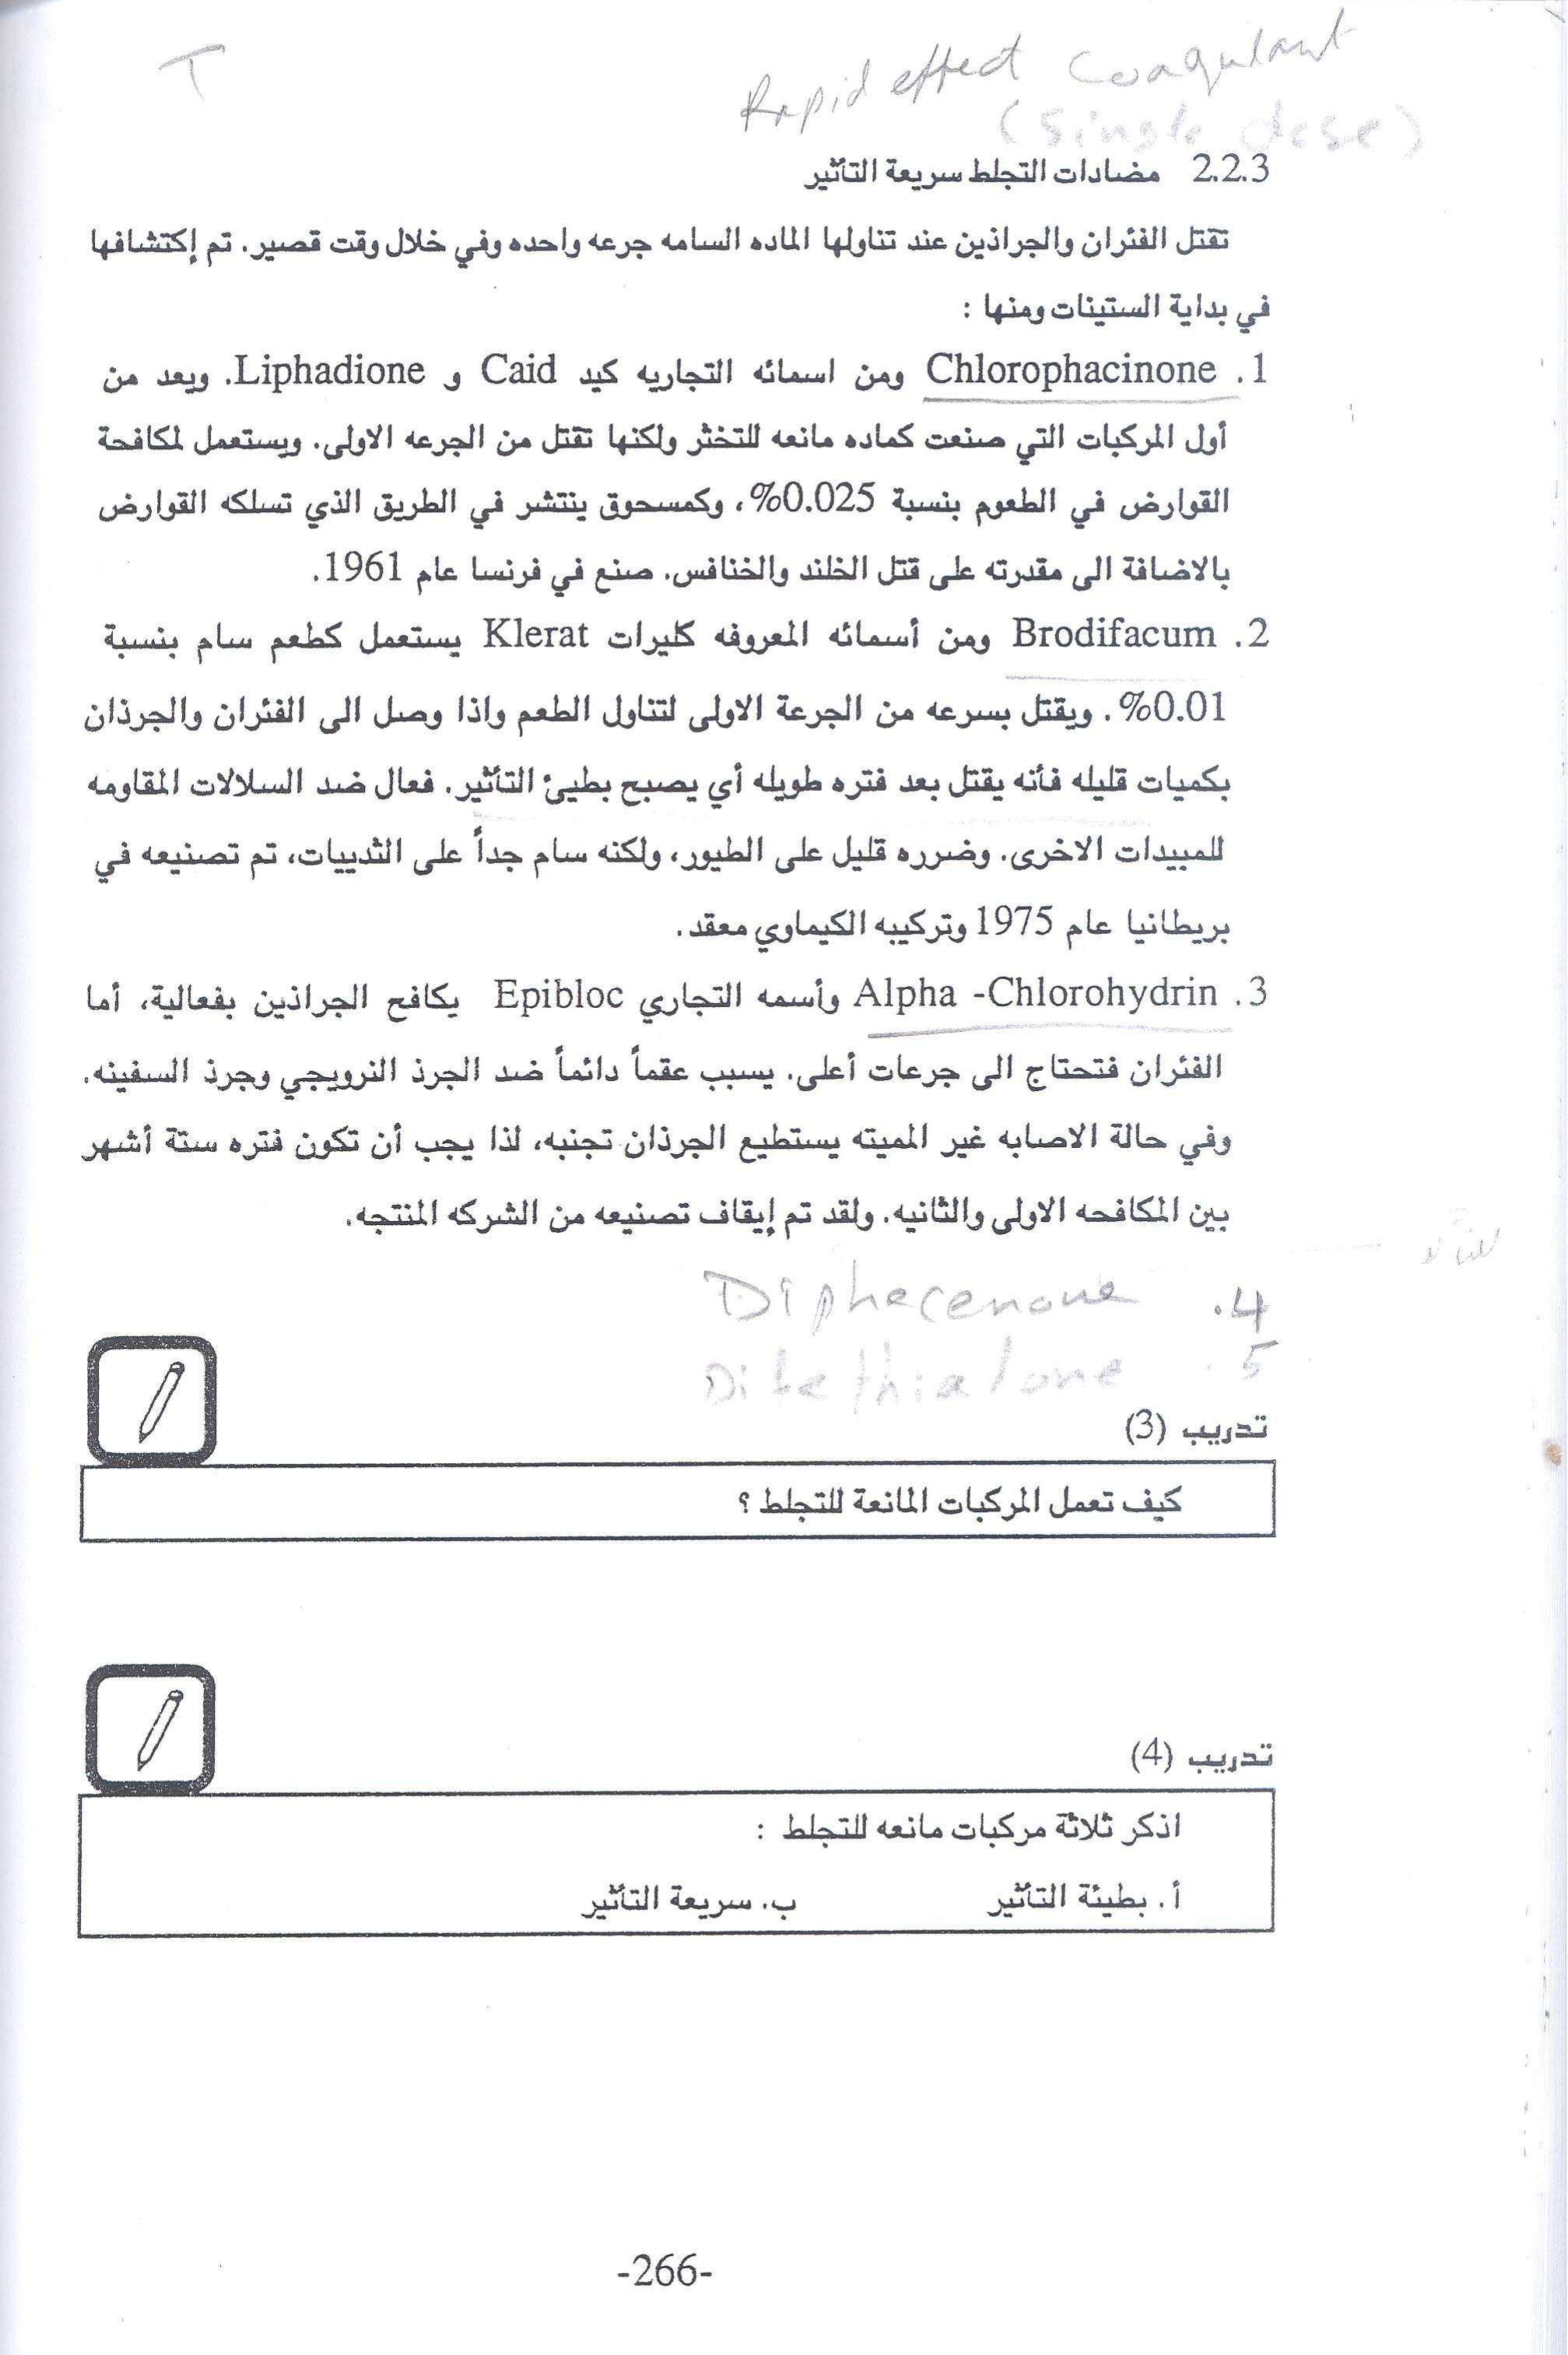 T
Rapid effect Coagulant
(Single dose)
2.2.3 مضادات التجلط سريعة التأثير
تقتل الفئران والجراذين عند تناولها الماده السامه جرعه واحده وفي خلال وقت قصير. تم إكتشافها
في بداية الستينات ومنها :
1. Chlorophacinone ومن اسمائه التجاريه كيد Caid و Liphadione. ويعد من
أول المركبات التي صنعت كماده مانعه للتخثر ولكنها تقتل من الجرعه الاولى. ويستعمل لمكافحة
القوارض في الطعوم بنسبة 0.025%، وكمسحوق ينتشر في الطريق الذي تسلكه القوارض
بالاضافة الى مقدرته على قتل الخلند والخنافس. صنع في فرنسا عام 1961.
2. Brodifacum ومن أسمائه المعروفه كليرات Klerat يستعمل كطعم سام بنسبة
0.01%. ويقتل بسرعه من الجرعة الاولى لتناول الطعم واذا وصل الى الفئران والجرذان
بكميات قليله فأنه يقتل بعد فتره طويله أي يصبح بطيئ التأثير. فعال ضد السلالات المقاومه
للمبيدات الاخرى. وضرره قليل على الطيور، ولكنه سام جداً على الثدييات، تم تصنيعه في
بريطانيا عام 1975 وتركيبه الكيماوي معقد.
3. Alpha -Chlorohydrin وأسمه التجاري Epibloc يكافح الجراذين بفعالية، أما
الفئران فتحتاج الى جرعات أعلى. يسبب عقماً دائماً ضد الجرذ النرويجي وجرذ السفينه.
وفي حالة الاصابه غير المميته يستطيع الجرذان تجنبه، لذا يجب أن تكون فتره ستة أشهر
بين المكافحه الاولى والثانيه. ولقد تم إيقاف تصنيعه من الشركه المنتجه.
4. Diphecenone
5. Difethialone
تدريب (3)
كيف تعمل المركبات المانعة للتجلط ؟
تدريب (4)
اذكر ثلاثة مركبات مانعه للتجلط :
أ. بطيئة التأثير ب. سريعة التأثير
-266-